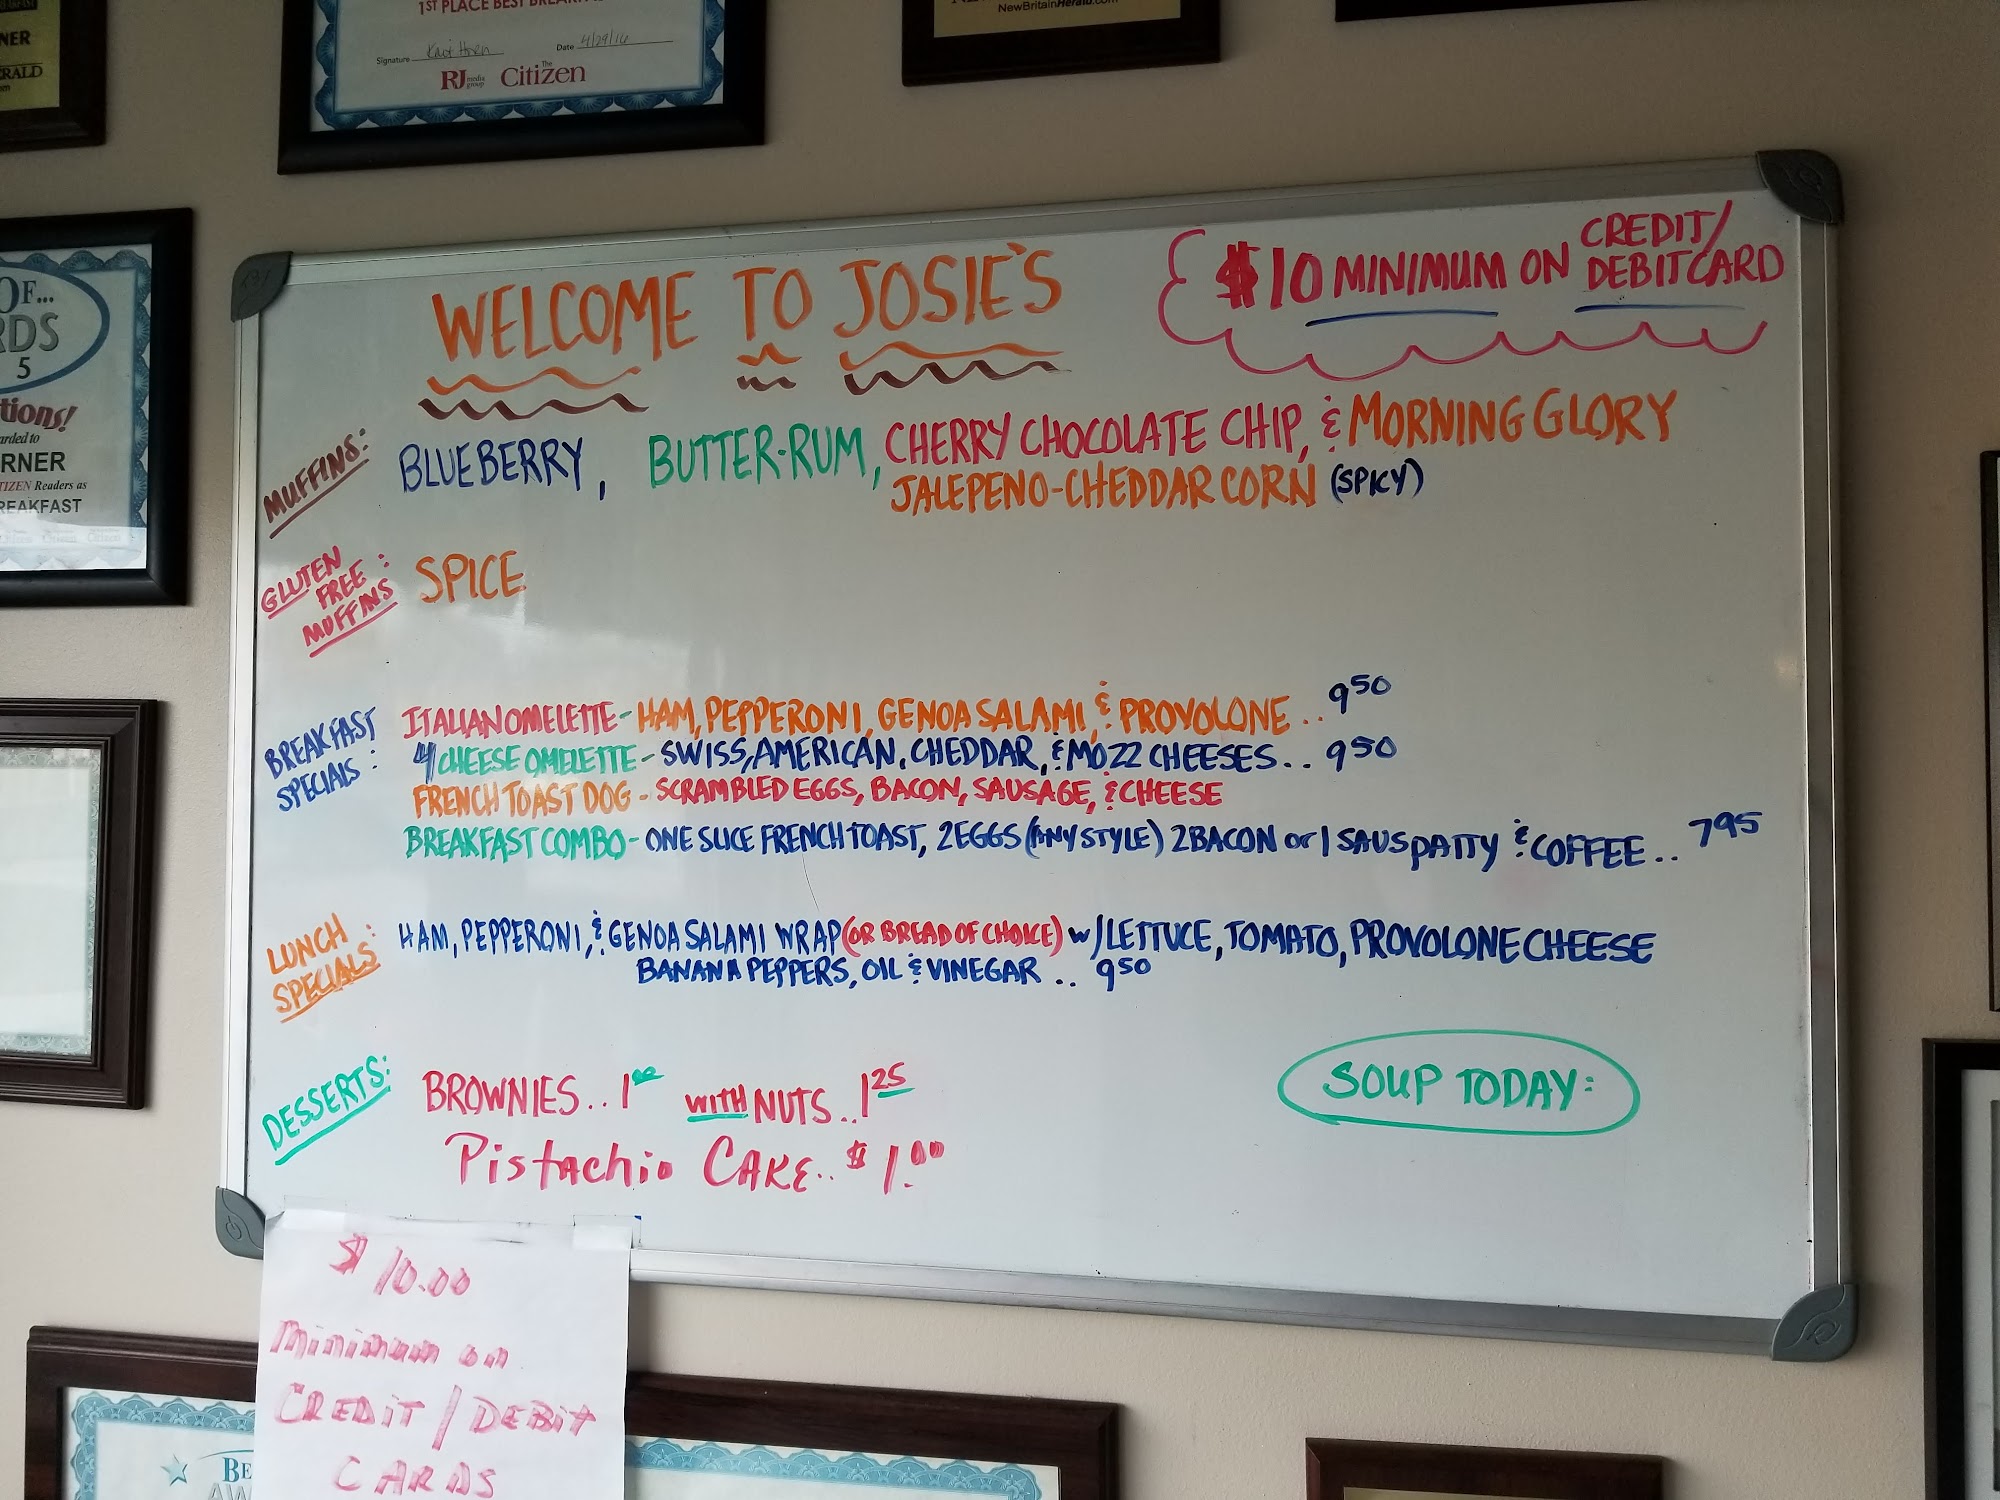 NER
ERALD
1ST PLACE BEST
Signature Date 4/29/16
RJ media group The Citizen
NewBritainHerald.com
OF...
RDS
5
tions!
arded to
RNER
TIZEN Readers as
REAKFAST
WELCOME TO JOSIE'S
$10 MINIMUM ON CREDIT/
DEBIT CARD
MUFFINS: BLUEBERRY, BUTTER-RUM, CHERRY CHOCOLATE CHIP, & MORNING GLORY
JALEPENO-CHEDDAR CORN (SPICY)
GLUTEN
FREE :
MUFFINS
SPICE
BREAKFAST
SPECIALS :
ITALIAN OMELETTE - HAM, PEPPERONI, GENOA SALAMI, & PROVOLONE .. 9 50
4 CHEESE OMELETTE - SWISS, AMERICAN, CHEDDAR, & MOZZ CHEESES .. 9 50
FRENCH TOAST DOG - SCRAMBLED EGGS, BACON, SAUSAGE, & CHEESE
BREAKFAST COMBO - ONE SLICE FRENCH TOAST, 2 EGGS (ANY STYLE) 2 BACON or 1 SAUS PATTY & COFFEE .. 7 95
LUNCH :
SPECIALS
HAM, PEPPERONI, & GENOA SALAMI WRAP (OR BREAD OF CHOICE) w/ LETTUCE, TOMATO, PROVOLONE CHEESE
BANANA PEPPERS, OIL & VINEGAR .. 9 50
DESSERTS: BROWNIES .. 1 00 WITH NUTS .. 1 25
Pistachio CAKE .. $1.00
SOUP TODAY:
$10.00
minimum on
CREDIT / DEBIT
CARDS
BE
AW